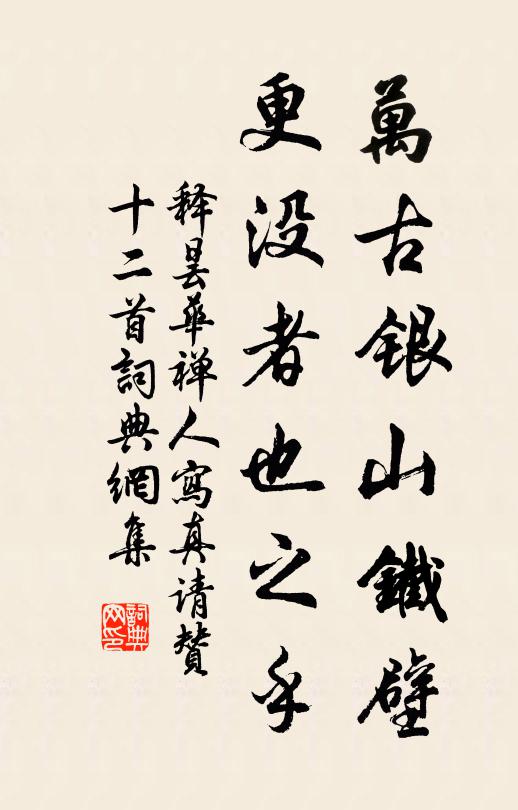 萬古銀山鐵壁
更没者也之乎
释曇華禅人寫真请贊
十二首詞典網集
詞典網印